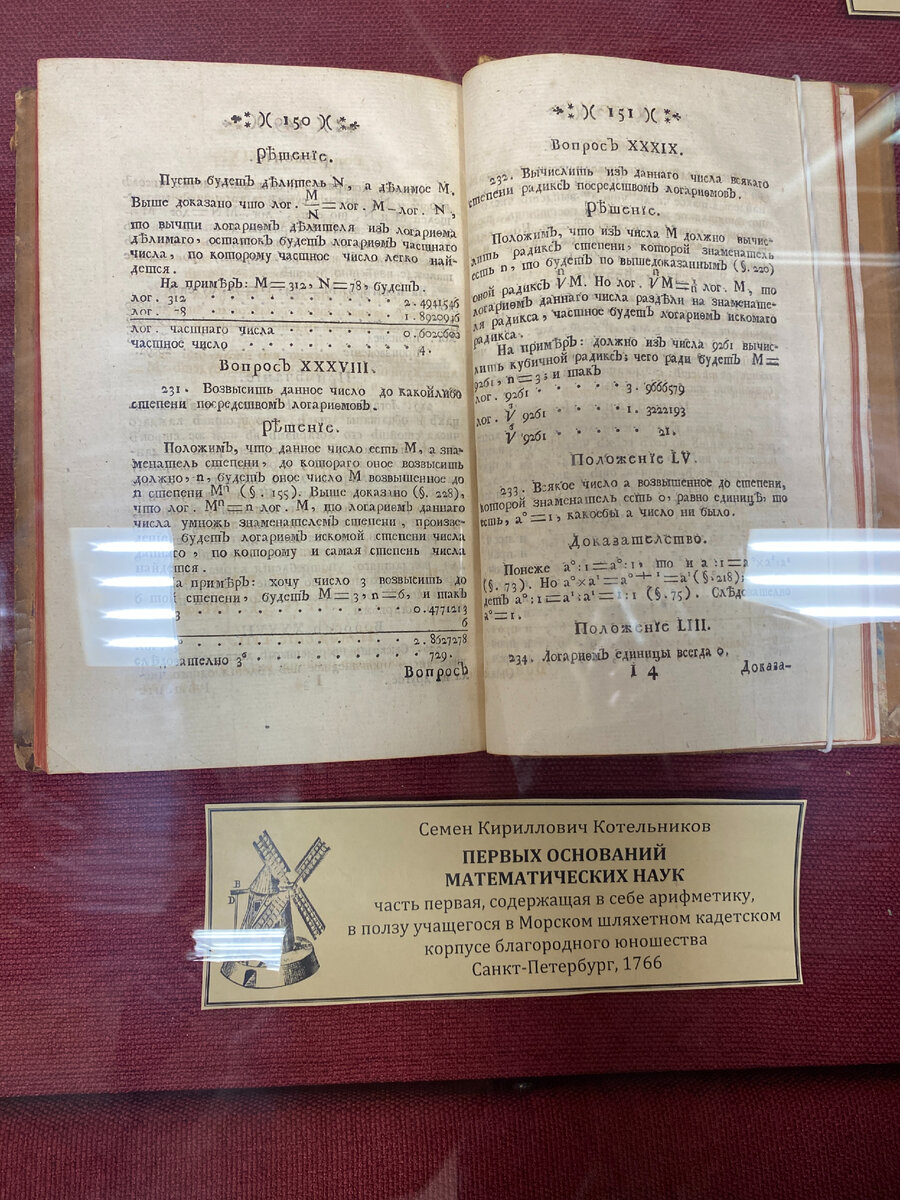 150
Рѣшенїе.
Пусть будетъ дѣлитель N, а дѣлимое M.
Выше доказано что лог. M/N = лог. M — лог. N,
то вычти логариѳмъ дѣлителя изъ логариѳма
дѣлимаго, остатокъ будетъ логариѳмъ частнаго
числа, по которому частное число легко най-
дется.
На примѣръ: M=312, N=78, будетъ.
лог. 312 . . . . . . . . 2.4941546
лог. 78 . . . . . . . . 1.8920946
лог. частнаго числа . . . . . 0.6020600
частное число . . . . . . 4.
Вопросъ XXXVIII.
231. Возвысить данное число до какойлибо
степени посредствомъ логариѳмовъ.
Рѣшенїе.
Положимъ, что данное число есть M, а зна-
менатель степени, до котораго оное возвысить
должно, n, будетъ оное число M возвышенное до
n степени Mⁿ (§. 155). Выше доказано (§. 228),
что лог. Mⁿ=n лог. M, то логариѳмъ даннаго
числа умножь знаменателемъ степени, произве-
денїе будетъ логариѳмъ искомой степени числа
даннаго, по которому и самая степень числа
найдется.
На примѣръ: хочу число 3 возвысить до
6 той степени, будетъ M=3, n=6, и такъ
3 . . . . . . . . 0.4771213
6
. . . . . . . . 2.8627278
слѣдователно 3⁶ . . . . . . 729.
Вопросъ
151
Вопросъ XXXIX.
232. Вычислить изъ даннаго числа всякаго
степени радиксъ посредствомъ логариѳмовъ.
Рѣшенїе.
Положимъ, что изъ числа M должно вычис-
лить радиксъ степени, которой знаменатель
есть n, то будетъ по вышедоказаннымъ (§. 220)
оной радиксъ ⁿ√M. Но лог. ⁿ√M=1/n лог. M, то
логариѳмъ даннаго числа раздѣли на знаменате-
ля радикса, частное будетъ логариѳмъ искомаго
радикса.
На примѣръ: должно изъ числа 9261 вычис-
лить кубичной радиксъ; чего ради будетъ M=
9261, n=3; и такъ
лог. 9261 . . . . . 3. 9666579
лог. ³√ 9261 . . . . 1. 3222193
³√ 9261 . . . . . 21.
Положенїе LV.
233. Всякое число a возвышенное до степени,
которой знаменатель есть 0, равно единицѣ, то
есть, a⁰=1, какоебы a число ни было.
Доказателство.
Понеже a⁰:1=a⁰:1, то и a :1=a
(§. 73). Но a⁰×a¹=a⁰⁺¹=a¹(§.218);
детъ a⁰:1=a¹:a¹=1:1 (§.75). Слѣдо
a⁰=1.
Положенїе LIII.
234. Логариѳмъ единицы всегда 0.
I 4
Доказа-
B
D
Семен Кириллович Котельников
ПЕРВЫХ ОСНОВАНИЙ
МАТЕМАТИЧЕСКИХ НАУК
часть первая, содержащая в себе арифметику,
в ползу учащегося в Морском шляхетном кадетском
корпусе благородного юношества
Санкт-Петербург, 1766